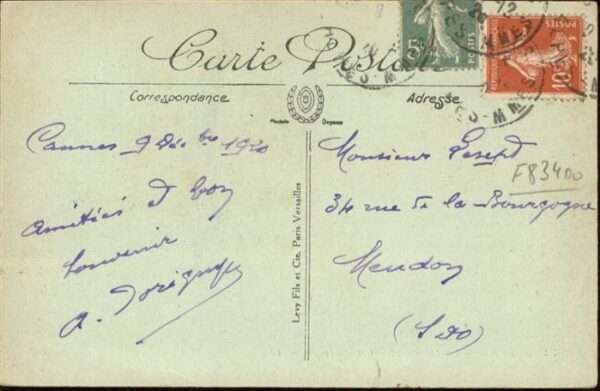 Carte Postale
Correspondance
Adresse
Modèle Déposé
Cannes 9 Déc bre 1920
Amitiés et bon
souvenir
A.
Levy Fils et Cie, Paris Versailles
Monsieur
F83400
34 rue de la Bourgogne
Meudon
(S & O)
5c
10c
POSTES